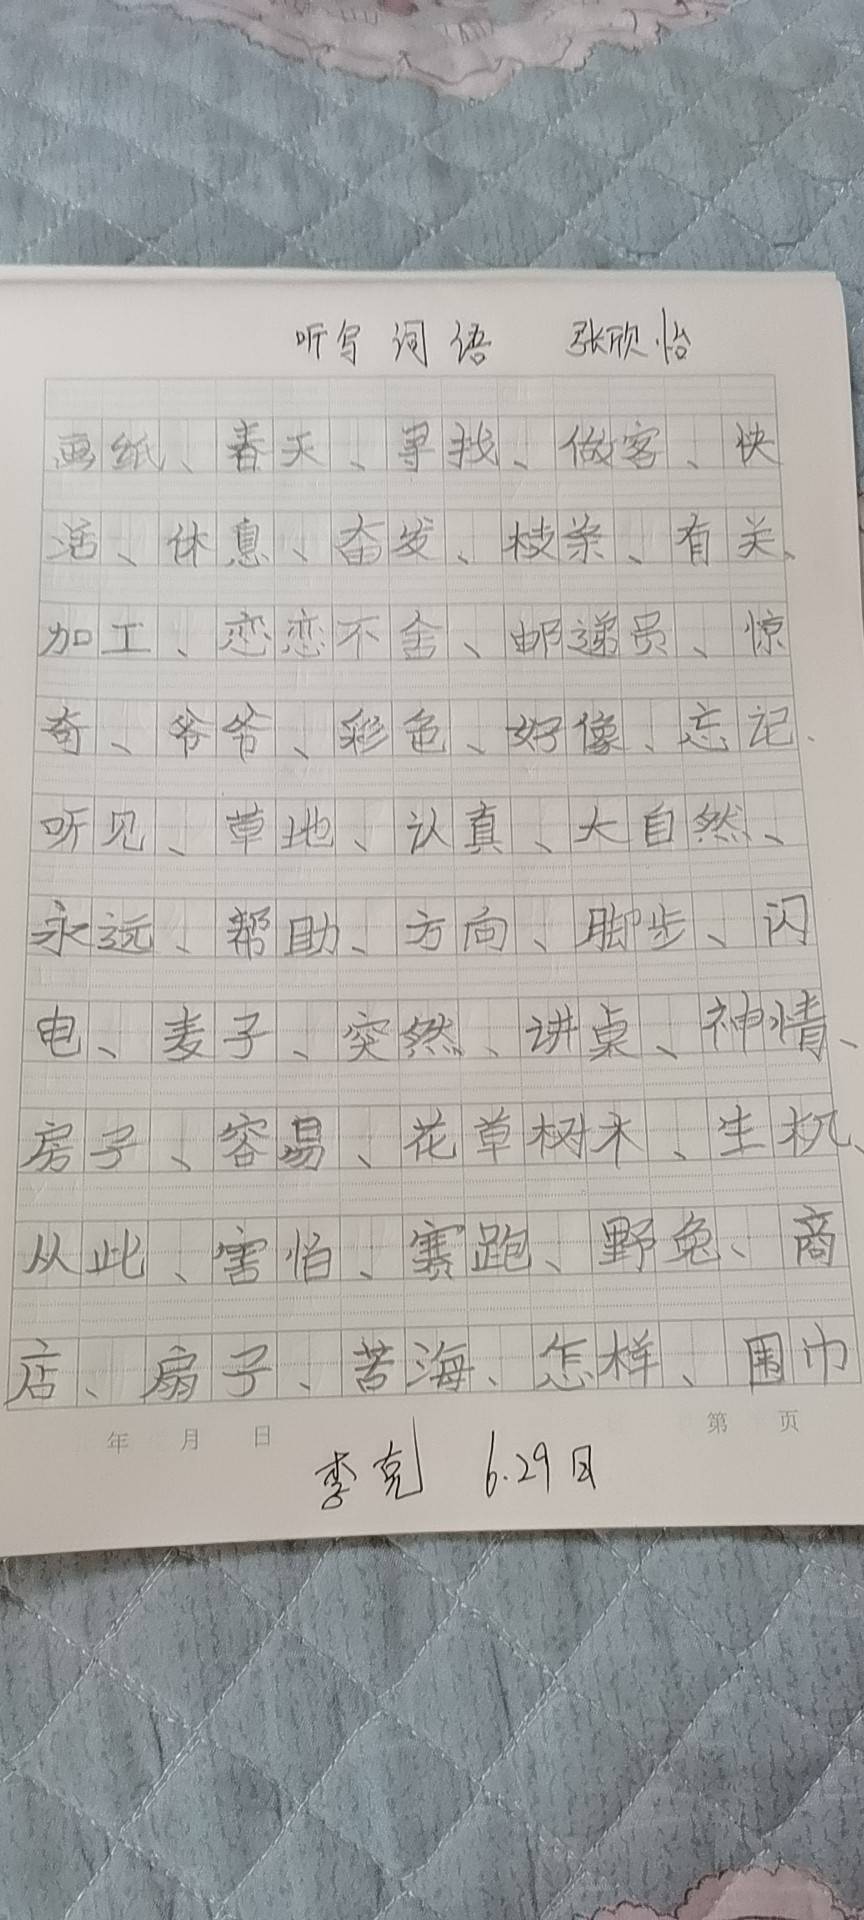 听写词语 张欣怡
画纸、春天、寻找、做客、快
活、休息、奋发、枝条、有关、
加工、恋恋不舍、邮递员、惊
奇、爷爷、彩色、好像、忘记、
听见、草地、认真、大自然、
永远、帮助、方向、脚步、闪
电、麦子、突然、讲桌、神情、
房子、容易、花草树木、生机、
从此、害怕、赛跑、野兔、商
店、扇子、苦海、怎样、围巾
年 月 日 第 页
李克 6.29日